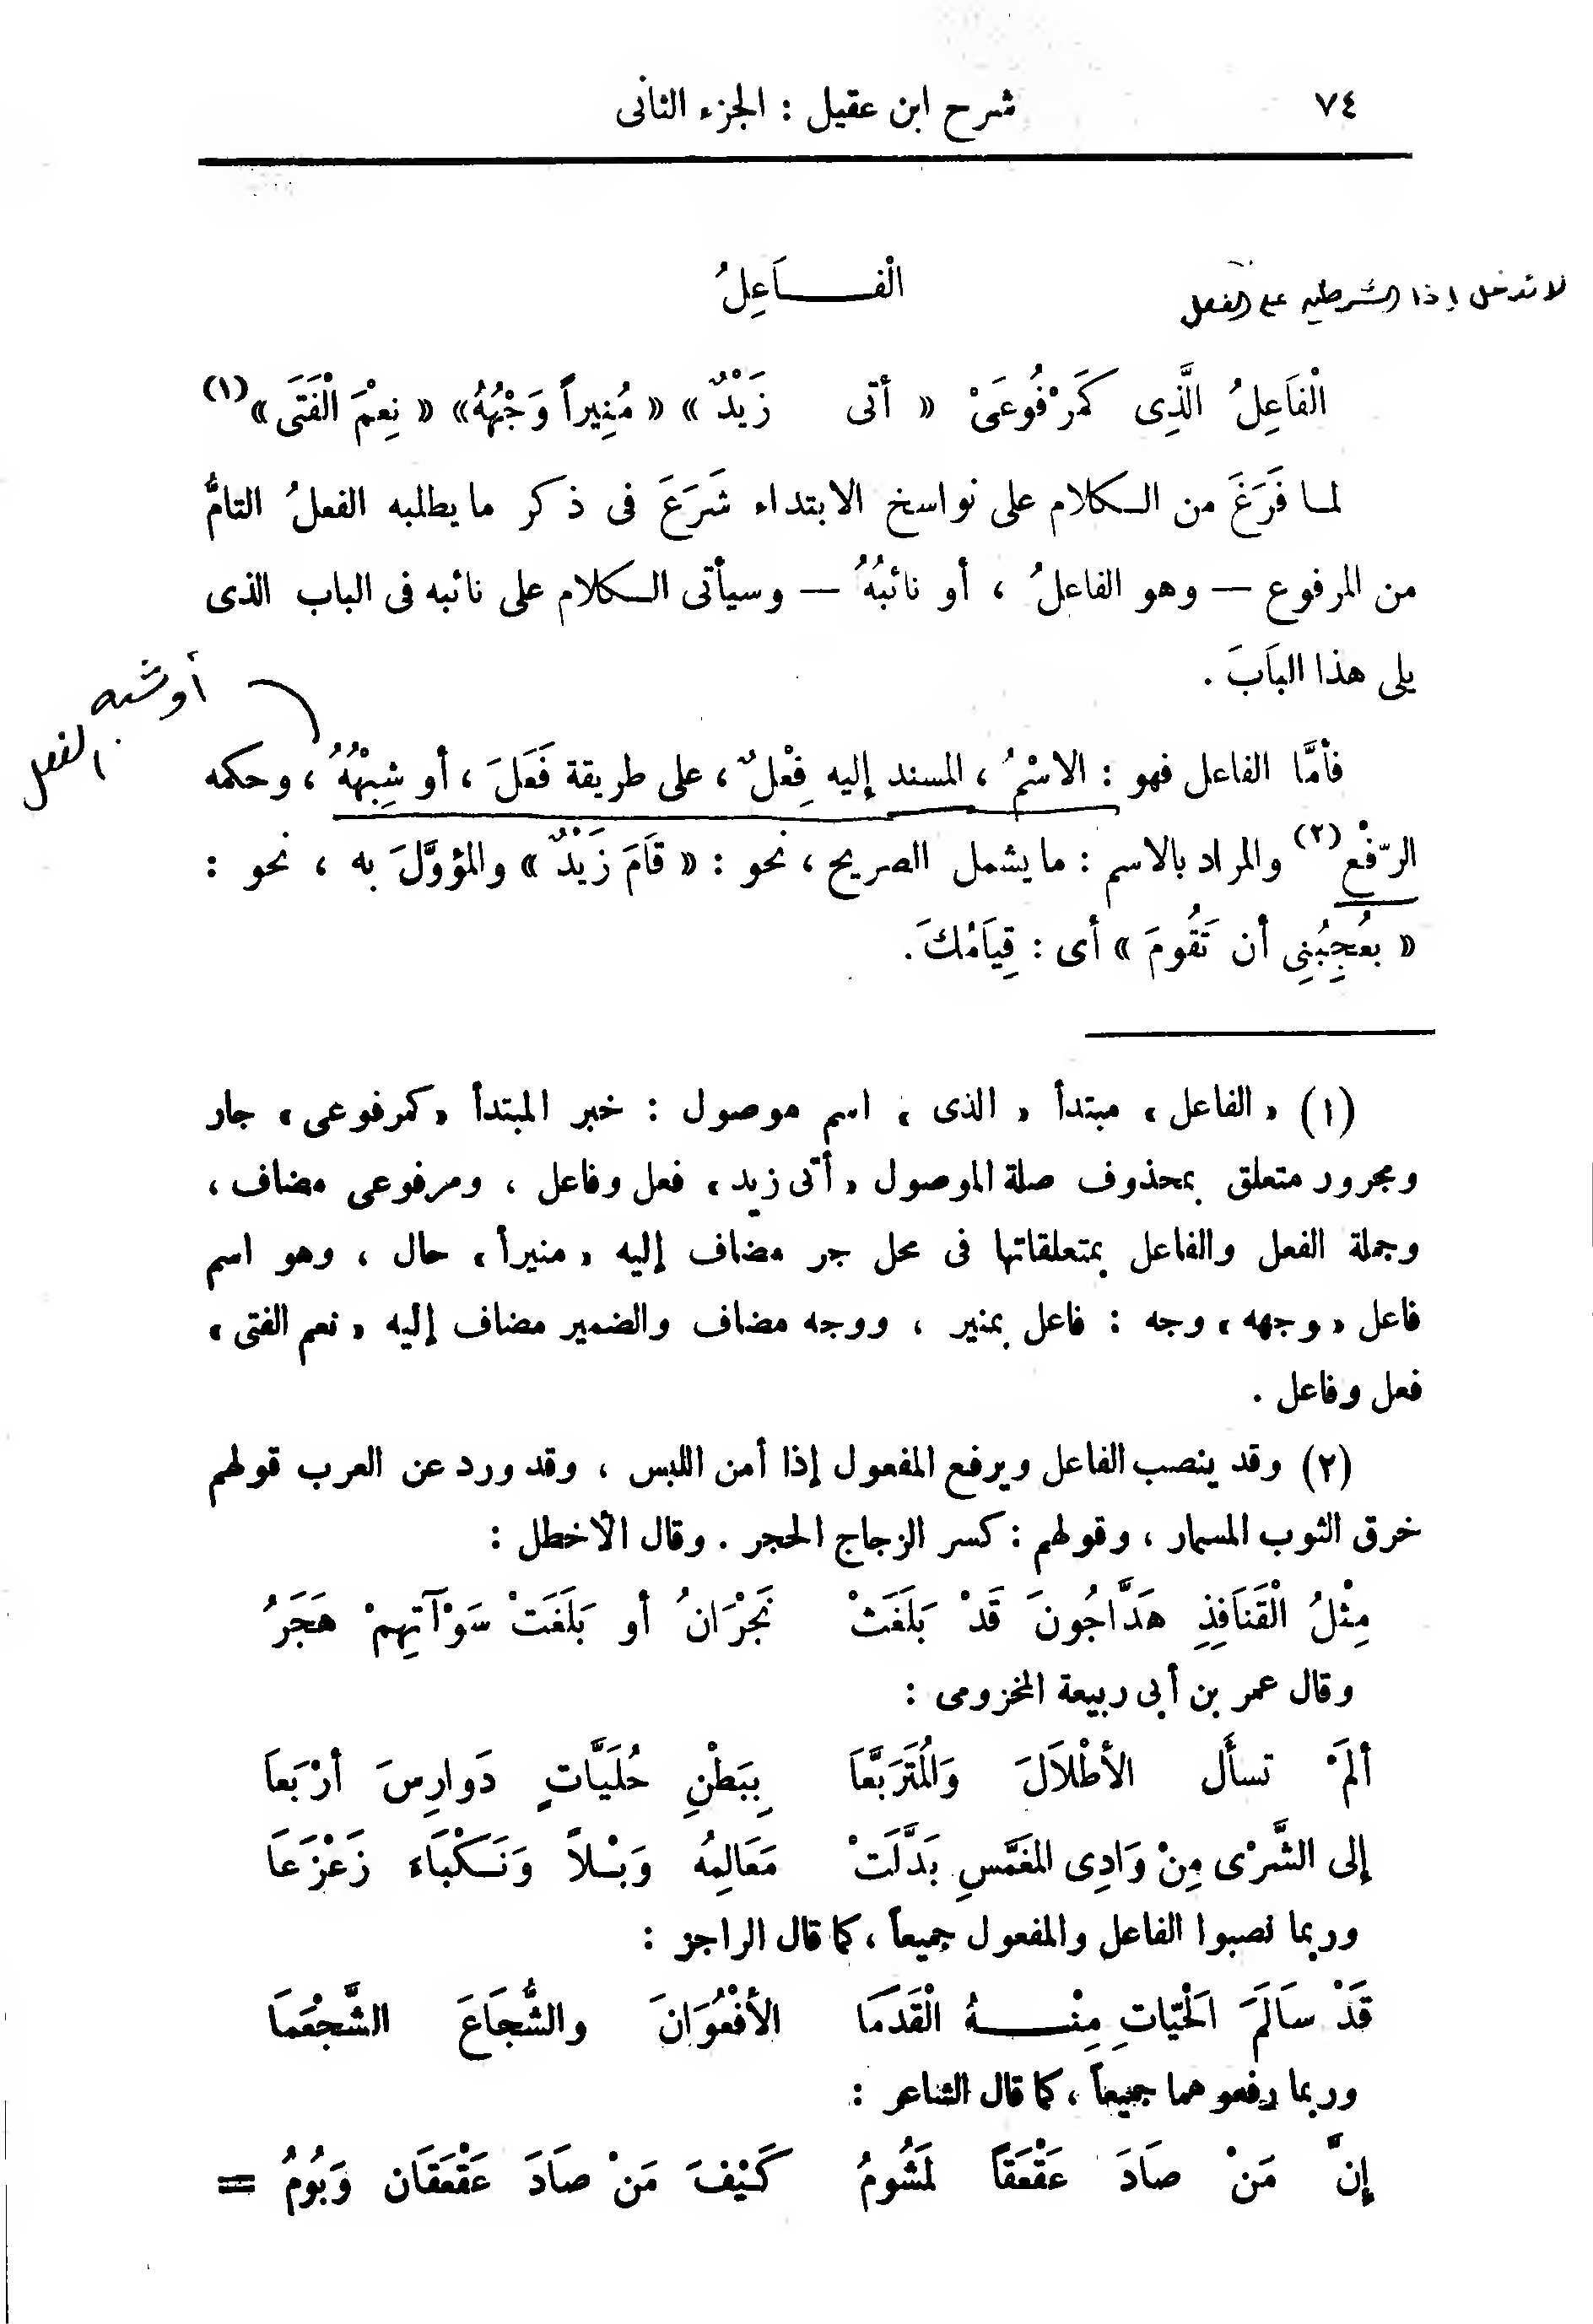 ٧٤
شرح ابن عقيل : الجزء الثانى
الْفَــاعِلُ
لا تدخل إذا الشرطيه على الفعل
الْفَاعِلُ الَّذِى كَمَرْفُوعَىْ « أتى زَيْدٌ » « مُنِيراً وَجْهُهُ » « نِعْمَ الْفَتَى »(١)
لمـا فَرَغَ من الـكلام على نواسخ الابتداء شَرَعَ فى ذكر ما يطلبه الفعلُ التامُّ
من المرفوع — وهو الفاعلُ ، أو نائبُهُ — وسيأتى الـكلام على نائبه فى الباب الذى
يلى هذا البَابَ .
أو شبه
الفعل
فأمَّا الفاعل فهو : الاسْمُ ، المسند إليه فِعْلٌ ، على طريقة فَعَلَ ، أو شِبْهُهُ ، وحكمه
الرّفْع(٢) والمراد بالاسم : ما يشمل الصريح ، نحو : « قَامَ زَيْدٌ » والمؤوَّلَ به ، نحو :
« يعُجِبُنِى أن تَقُومَ » أى : قِيَامُكَ .
(١) « الفاعل » مبتدأ « الذى » اسم موصول : خبر المبتدأ « كمرفوعى » جار
ومجرور متعلق بمحذوف صلة الموصول « أتى زيد » فعل وفاعل ، ومرفوعى مضاف ،
وجملة الفعل والفاعل بمتعلقاتها فى محل جر مضاف إليه « منيراً » حال ، وهو اسم
فاعل « وجهه » وجه : فاعل بمنير ، ووجه مضاف والضمير مضاف إليه « نعم الفتى »
فعل وفاعل .
(٢) وقد ينصب الفاعل ويرفع المفعول إذا أمن اللبس ، وقد ورد عن العرب قولهم
خرق الثوب المسمار ، وقولهم : كسر الزجاج الحجر . وقال الأخطل :
مِثْلُ الْقَنَافِذِ هَدَّاجُونَ قَدْ بَلَغَتْ نَجْرَانُ أو بَلَغَتْ سَوْآتِهِمْ هَجَرُ
وقال عمر بن أبى ربيعة المخزومى :
ألَمْ تسأَل الأطْلاَلَ وَالُمتَرَبَّعَا بِبَطْنِ حُلَيَّاتٍ دَوارِسَ أرْبَعاَ
إلى الشَّرْى مِنْ وَادِى المغَمَّسِ بَدَّلَتْ مَعَالِمُه وَبْـلاً وَنَـكْبَاءَ زَعْزَعَا
وربما نصبوا الفاعل والمفعول جميعاً ، كما قال الراجز :
قَدْ سَالَمَ الَحْيّاتِ مِنْــهُ الْقَدَمَا الأفْعُوَانَ والشُّجَاعَ الشَّجْعَمَا
وربما رفعوهما جميعاً ، كما قال الشاعر :
إنَّ مَنْ صَادَ عَقْعَقاً لَمَشُومُ كَيْفَ مَنْ صَادَ عَقْعَقَان وَبُومُ =